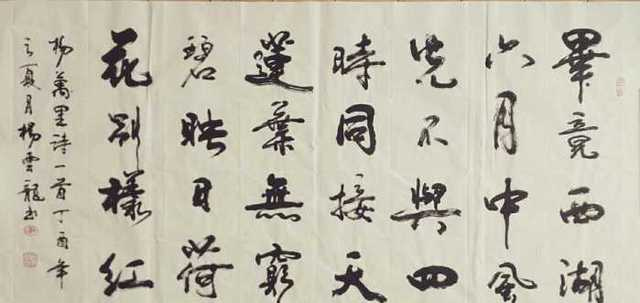 畢竟西湖
六月中風
光不與四
時同接天
蓮葉無窮
碧映日荷
花別樣紅
楊萬里詩一首丁酉年
之夏月楊雲龍书